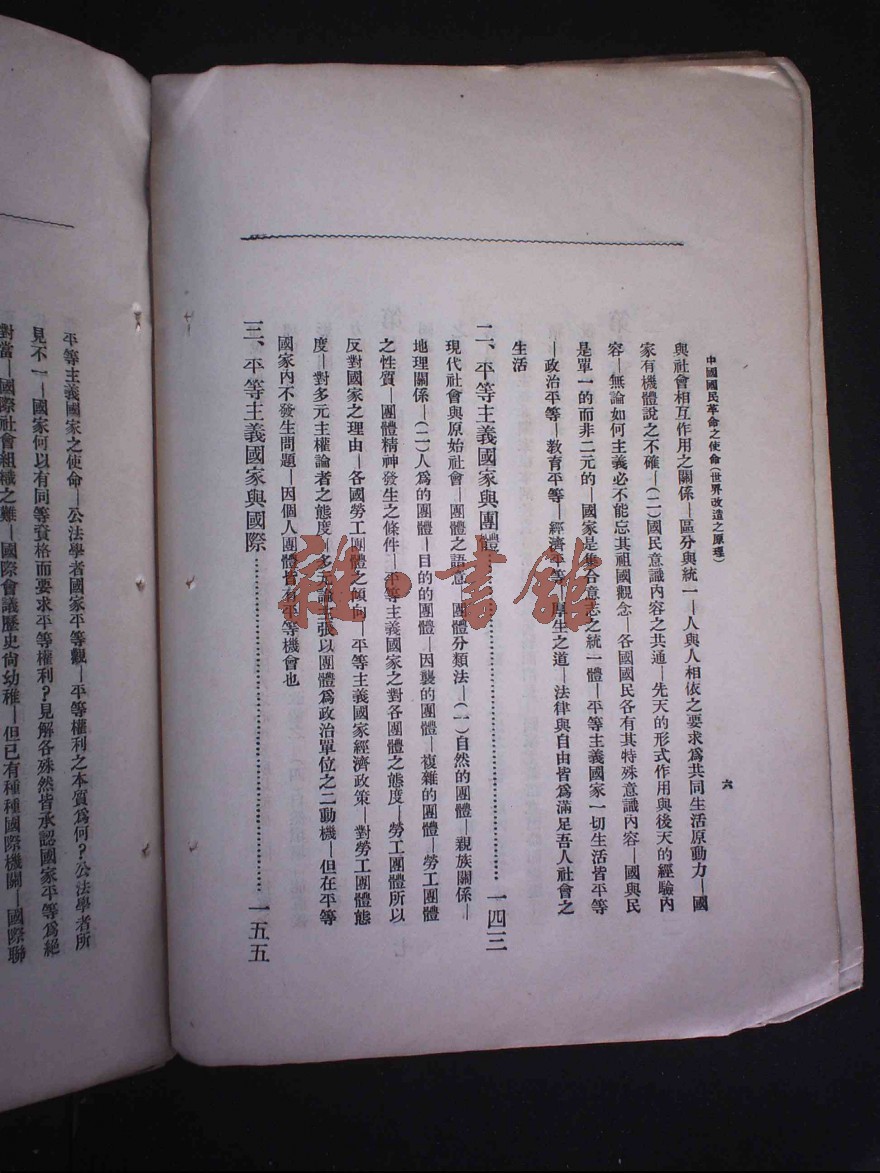 中國國民革命之使命(世界改造之原理)
六
與社會相互作用之關係—區分與統一—人與人相依之要求爲共同生活原動力—國
家有機體說之不確—(二)國民意識內容之共通—先天的形式作用與後天的經驗內
容—無論如何主義必不能忘其祖國觀念—各國國民各有其特殊意識內容—國與民
是單一的而非二元的—國家是集合意志之統一體—平等主義國家一切生活皆平等
—政治平等—教育平等—經濟平等—厚生之道—法律與自由皆爲滿足吾人社會之
生活
二、平等主義國家與團體……一四三
現代社會與原始社會—團體之語意—團體分類法—(一)自然的團體—親族關係—
地理關係—(二)人爲的團體—目的的團體—因襲的團體—複雜的團體—勞工團體
之性質—團體精神發生之條件—平等主義國家之對各團體之態度—勞工團體所以
反對國家之理由—各國勞工團體之傾向—平等主義國家經濟政策—對勞工團體態
度—對多元主權論者之態度—多元論主張以團體爲政治單位之二動機—但在平等
國家內不發生問題—因個人團體皆有平等機會也
三、平等主義國家與國際……一五五
平等主義國家之使命—公法學者國家平等觀—平等權利之本質爲何?公法學者所
見不一—國家何以有同等資格而要求平等權利?見解各殊然皆承認國家平等爲絕
對當—國際社會組織之難—國際會議歷史尙幼稚—但已有種種國際機關—國際聯
雜·書館